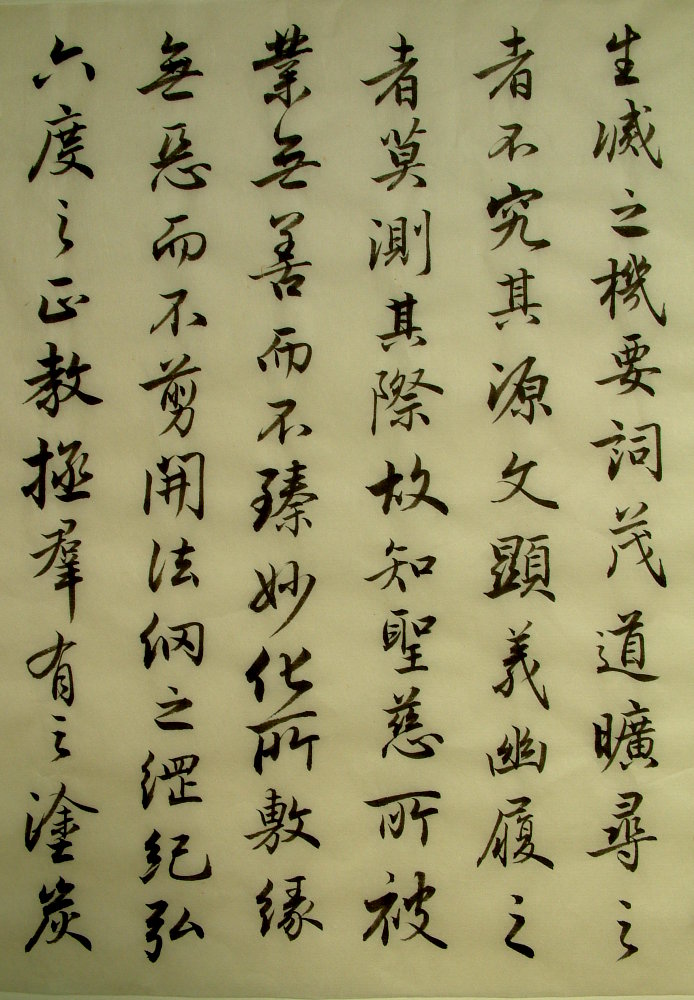 生滅之機要詞茂道曠尋之
者不究其源文顯義幽履之
者莫測其際故知聖慈所被
業無善而不臻妙化所敷緣
無惡而不剪開法網之綱紀弘
六度之正教拯羣有之塗炭